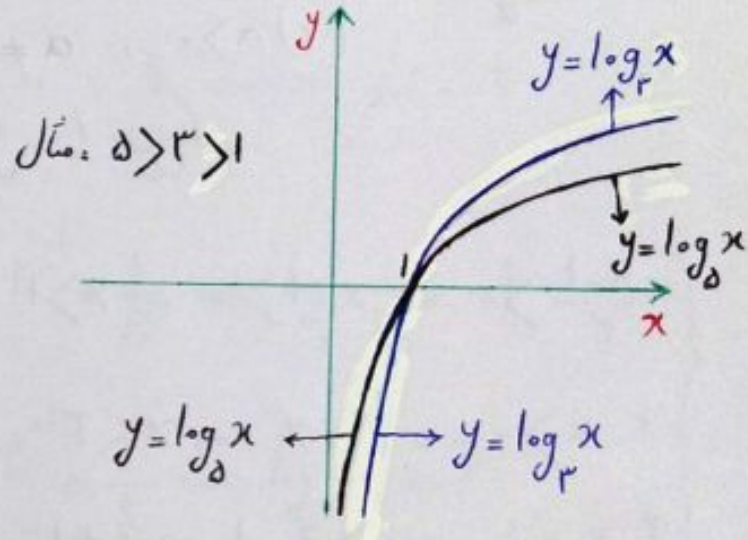 y
y = log_۳ x
مثال: ۵ > ۳ > 1
y = log_۵ x
1
x
y = log_۵ x
y = log_۳ x